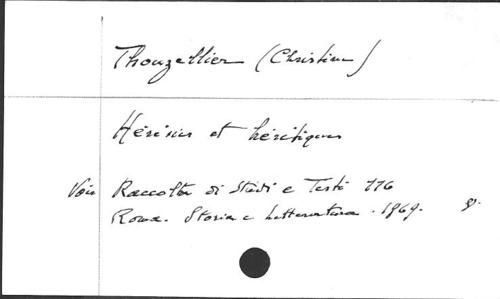 Thouzellier (Christine)
Hérésies et hérétiques
Voir Raccolta di Studi e Testi 116
Roma. Storia e Letteratura. 1969.